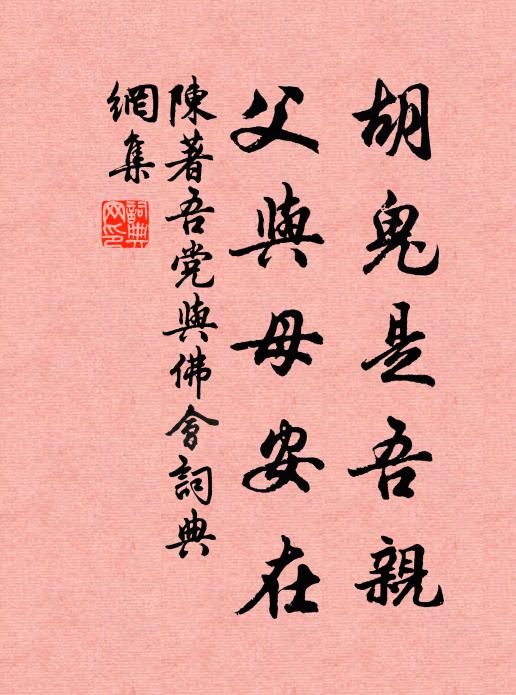 胡鬼是吾親
父與母安在
陳著吾党與佛會詞典
網集
詞典網印